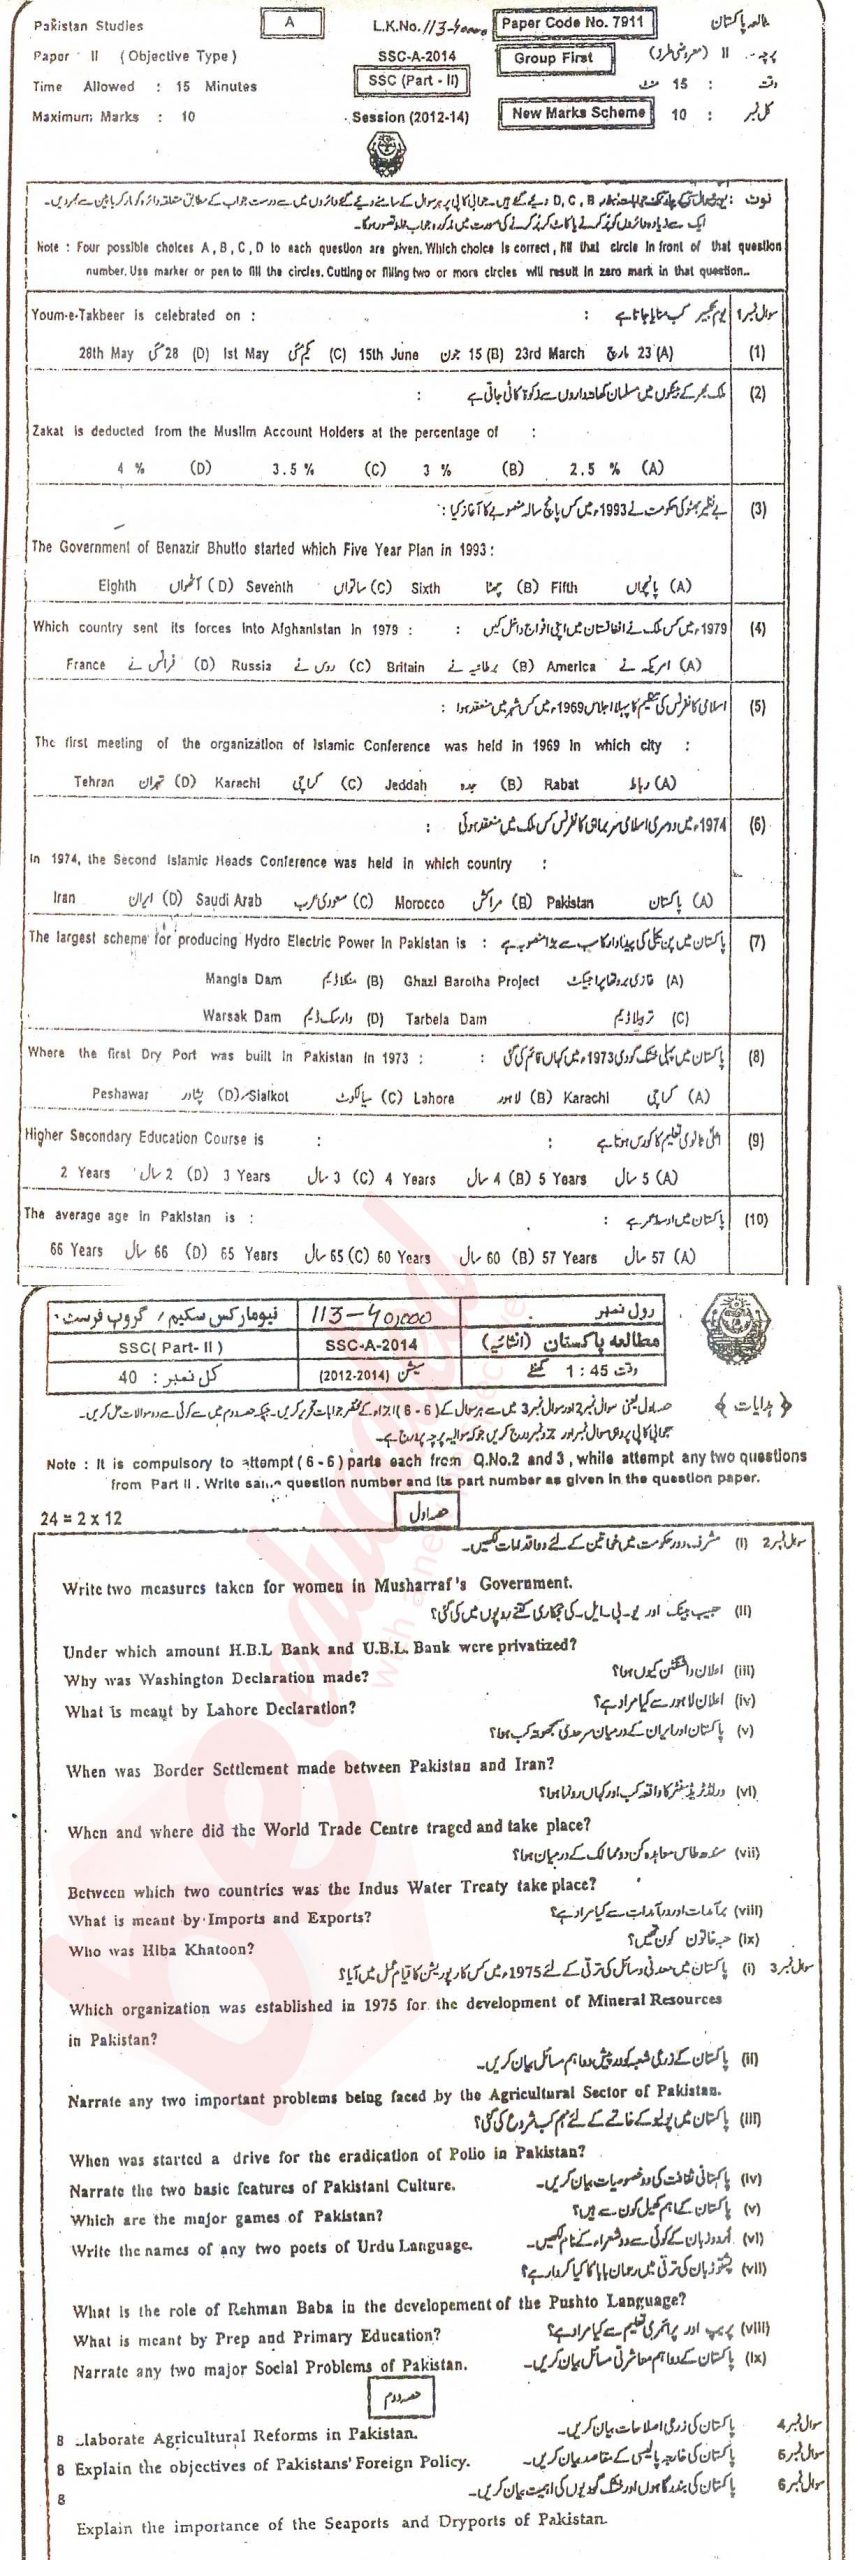 Pakistan Studies A L.K.No. 113-40000 Paper Code No. 7911 مطالعہ پاکستان
Paper II (Objective Type) SSC-A-2014 Group First پرچہ II (معروضی طرز)
Time Allowed : 15 Minutes SSC (Part - II) وقت : 15 منٹ
Maximum Marks : 10 Session (2012-14) New Marks Scheme کل نمبر : 10
Note : Four possible choices A, B, C, D to each question are given. Which choice is correct, fill that circle in front of that question
number. Use marker or pen to fill the circles. Cutting or filling two or more circles will result in zero mark in that question..
سوال نمبر 1 یوم تکبیر کب منایا جاتا ہے :
Youm-e-Takbeer is celebrated on :
(1) (A) 23 مارچ 23rd March (B) 15 جون 15th June (C) یکم مئی Ist May (D) 28 مئی 28th May
(2) ملک بھر کے بینکوں میں مسلمان کھاتہ داروں سے زکوۃ کاٹی جاتی ہے :
Zakat is deducted from the Muslim Account Holders at the percentage of :
(A) 2.5 % (B) 3 % (C) 3.5 % (D) 4 %
(3) بے نظیر بھٹو کی حکومت نے 1993ء میں کس پانچ سالہ منصوبے کا آغاز کیا :
The Government of Benazir Bhutto started which Five Year Plan in 1993 :
(A) پانچواں Fifth (B) چھٹا Sixth (C) ساتواں Seventh (D) آٹھواں Eighth
(4) 1979ء میں کس ملک نے افغانستان میں اپنی افواج داخل کیں :
Which country sent its forces into Afghanistan in 1979 :
(A) امریکہ نے America (B) برطانیہ نے Britain (C) روس نے Russia (D) فرانس نے France
(5) اسلامی کانفرنس کی تنظیم کا پہلا اجلاس 1969ء میں کس شہر میں منعقد ہوا :
The first meeting of the organization of Islamic Conference was held in 1969 in which city :
(A) رباط Rabat (B) جدہ Jeddah (C) کراچی Karachi (D) تہران Tehran
(6) 1974ء میں دوسری اسلامی سربراہی کانفرنس کس ملک میں منعقد ہوئی :
In 1974, the Second Islamic Heads Conference was held in which country :
(A) پاکستان Pakistan (B) مراکش Morocco (C) سعودی عرب Saudi Arab (D) ایران Iran
(7) پاکستان میں پن بجلی کی پیداوار کا سب سے بڑا منصوبہ ہے :
The largest scheme for producing Hydro Electric Power in Pakistan is :
(A) غازی بروتھا پراجیکٹ Ghazi Barotha Project (B) منگلا ڈیم Mangla Dam
(C) تربیلا ڈیم Tarbela Dam (D) وارسک ڈیم Warsak Dam
(8) پاکستان میں پہلی خشک گودی 1973ء میں کہاں قائم کی گئی :
Where the first Dry Port was built in Pakistan in 1973 :
(A) کراچی Karachi (B) لاہور Lahore (C) سیالکوٹ Sialkot (D) پشاور Peshawar
(9) اعلیٰ ثانوی تعلیم کا کورس ہوتا ہے :
Higher Secondary Education Course is :
(A) 5 سال 5 Years (B) 4 سال 4 Years (C) 3 سال 3 Years (D) 2 سال 2 Years
(10) پاکستان میں اوسط عمر ہے :
The average age in Pakistan is :
(A) 57 سال 57 Years (B) 60 سال 60 Years (C) 65 سال 65 Years (D) 66 سال 66 Years
رول نمبر 113-40,000 نیو مارکس سکیم / گروپ فرسٹ
مطالعہ پاکستان (انشائیہ) SSC-A-2014 SSC( Part- II )
وقت 1 : 45 گھنٹے سیشن (2012-2014) کل نمبر : 40
﴿ ہدایات ﴾
Note : It is compulsory to attempt (6 - 6) parts each from Q.No.2 and 3, while attempt any two questions
from Part II . Write same question number and its part number as given in the question paper.
24 = 2 x 12 حصہ اول
سوال نمبر 2 (i) مشرف دور حکومت میں خواتین کے لئے دو اقدامات لکھیں۔
Write two measures taken for women in Musharraf's Government.
(ii) حبیب بینک اور یو۔بی۔ایل۔ کی نجکاری کتنے روپوں میں کی گئی؟
Under which amount H.B.L Bank and U.B.L. Bank were privatized?
(iii) اعلان واشنگٹن کیوں ہوا؟
Why was Washington Declaration made?
(iv) اعلان لاہور سے کیا مراد ہے؟
What is meant by Lahore Declaration?
(v) پاکستان اور ایران کے درمیان سرحدی سمجھوتہ کب ہوا؟
When was Border Settlement made between Pakistan and Iran?
(vi) ورلڈ ٹریڈ سنٹر کا واقعہ کب اور کہاں رونما ہوا؟
When and where did the World Trade Centre traged and take place?
(vii) سندھ طاس معاہدہ کن دو ممالک کے درمیان ہوا؟
Between which two countries was the Indus Water Treaty take place?
(viii) برآمدات اور درآمدات سے کیا مراد ہے؟
What is meant by Imports and Exports?
(ix) حبہ خاتون کون تھیں؟
Who was Hiba Khatoon?
سوال نمبر 3 (i) پاکستان میں معدنی وسائل کی ترقی کے لئے 1975ء میں کس کارپوریشن کا قیام عمل میں آیا؟
Which organization was established in 1975 for the development of Mineral Resources
in Pakistan?
(ii) پاکستان کے زرعی شعبہ کو درپیش دو اہم مسائل بیان کریں۔
Narrate any two important problems being faced by the Agricultural Sector of Pakistan.
(iii) پاکستان میں پولیو کے خاتمے کے لئے مہم کب شروع کی گئی؟
When was started a drive for the eradication of Polio in Pakistan?
(iv) پاکستانی ثقافت کی دو خصوصیات بیان کریں۔
Narrate the two basic features of Pakistani Culture.
(v) پاکستان کے اہم کھیل کون سے ہیں؟
Which are the major games of Pakistan?
(vi) اُردو زبان کے کوئی سے دو شعراء کے نام لکھیں۔
Write the names of any two poets of Urdu Language.
(vii) پشتو زبان کی ترقی میں رحمان بابا کا کیا کردار ہے؟
What is the role of Rehman Baba in the developement of the Pushto Language?
(viii) پریپ اور پرائمری تعلیم سے کیا مراد ہے؟
What is meant by Prep and Primary Education?
(ix) پاکستان کے دو اہم معاشرتی مسائل بیان کریں۔
Narrate any two major Social Problems of Pakistan.
حصہ دوم
سوال نمبر 4 پاکستان کی زرعی اصلاحات بیان کریں۔
8 Elaborate Agricultural Reforms in Pakistan.
سوال نمبر 5 پاکستان کی خارجہ پالیسی کے مقاصد بیان کریں۔
8 Explain the objectives of Pakistans' Foreign Policy.
سوال نمبر 6 پاکستان کی بندرگاہوں اور خشک گودیوں کی اہمیت بیان کریں۔
8
Explain the importance of the Seaports and Dryports of Pakistan.